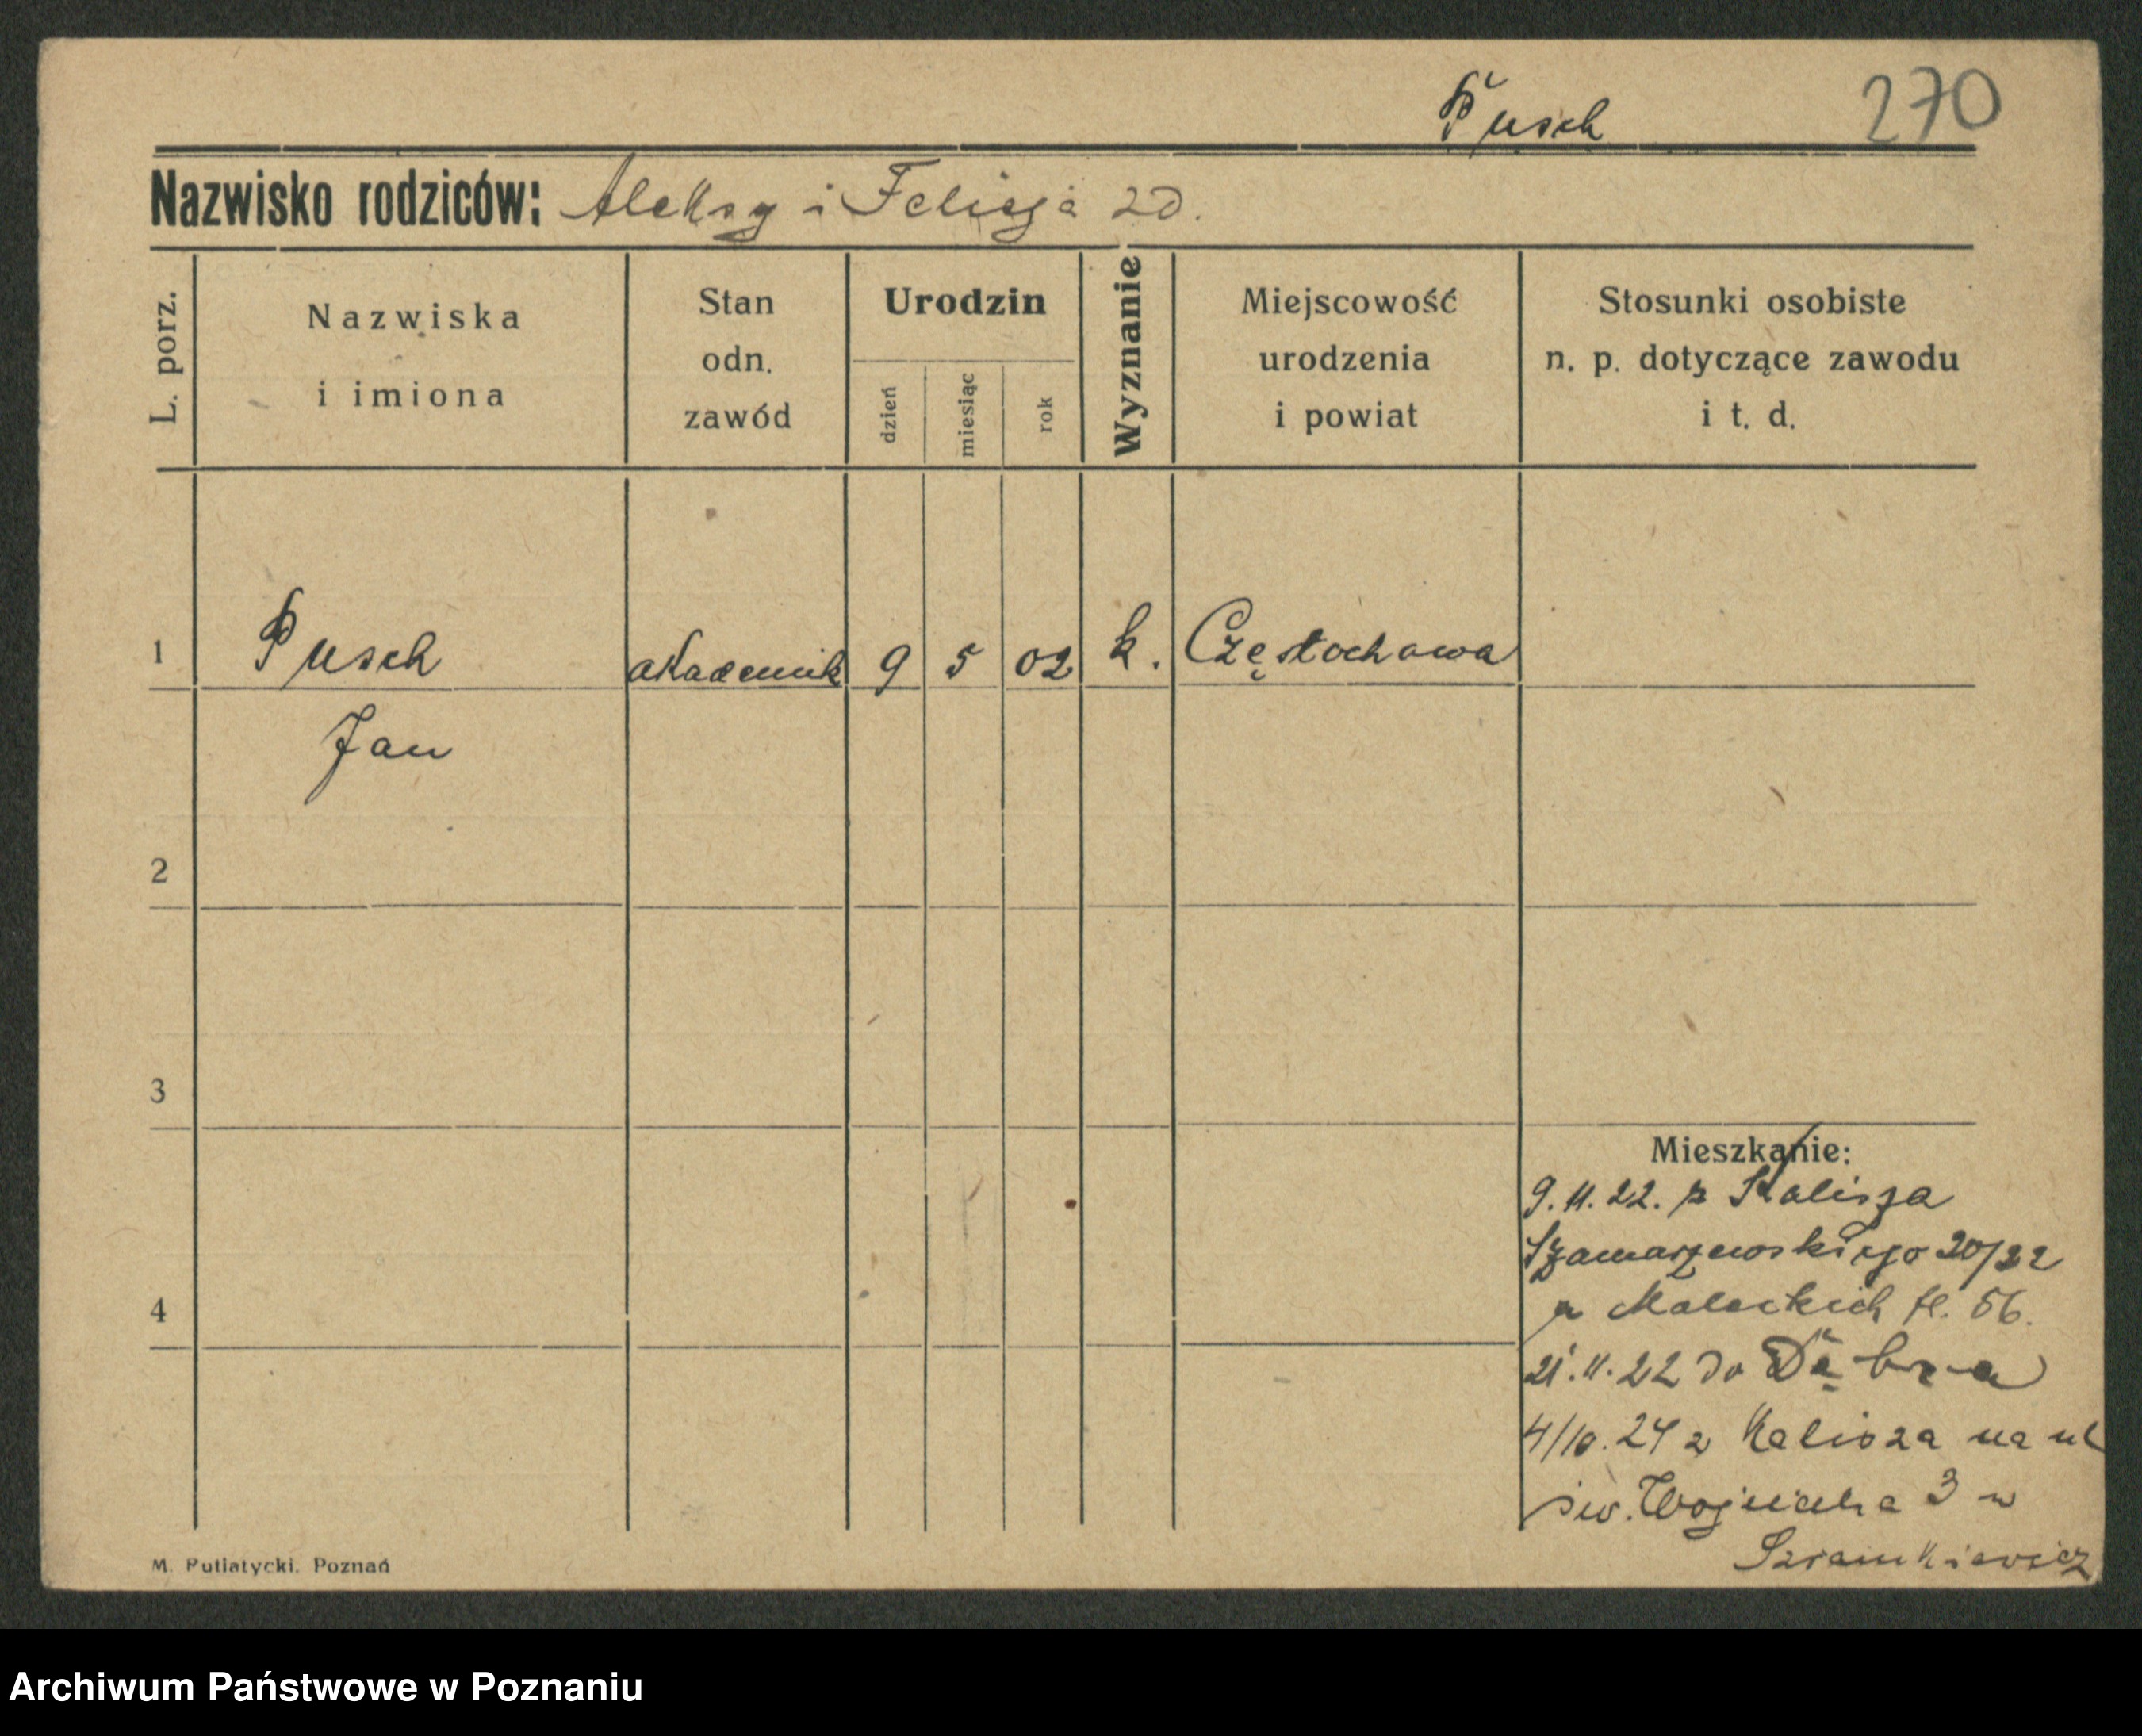 Pusch 270
Nazwisko rodziców: Aleksy i Felicja zd.
L. porz.
Nazwiska
i imiona
Stan
odn.
zawód
Urodzin
dzień
miesiąc
rok
Wyznanie
Miejscowość
urodzenia
i powiat
Stosunki osobiste
n. p. dotyczące zawodu
i t. d.
1 Pusch akademik 9 5 02 k. Częstochowa
Jan
2
3
4
Mieszkanie:
9.11.22. z Kalisza
Szamarzewskiego 20/22
u Maleckich
21.11.22 do
4/10.24 z Kalisza na ul
św. Wojciecha 3 u
Szramkiewicz
M. Putiatycki. Poznań
Archiwum Państwowe w Poznaniu